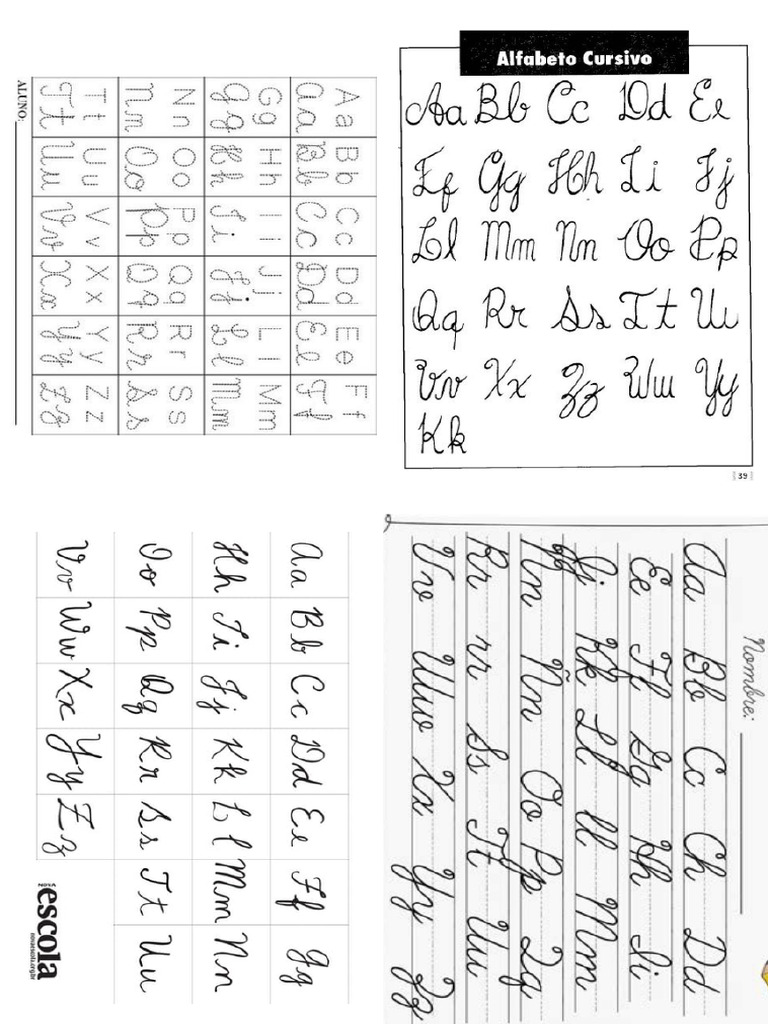 ALUNO:
Aa Bb Cc Dd Ee Ff
Aa Bb Cc Dd Ee Ff
Gg Hh Ii Jj Ll Mm
Gg Hh Ii Jj Ll Mm
Nn Oo Pp Qq Rr Ss
Nn Oo Pp Qq Rr Ss
Tt Uu Vv Xx Yy Zz
Tt Uu Vv Xx Yy Zz
Alfabeto Cursivo
Aa Bb Cc Dd Ee
Ff Gg Hh Ii Jj
Ll Mm Nn Oo Pp
Qq Rr Ss Tt Uu
Vv Xx Zz Ww Yy
Kk
39
Aa Bb Cc Dd Ee Ff Gg
Hh Ii Jj Kk Ll Mm Nn
Oo Pp Qq Rr Ss Tt Uu
Vv Ww Xx Yy Zz
escola
Nombre:
Aa Bb Cc Ch Dd
Ee Ff Gg Hh Ii
Jj Kk Ll ll Mm
Nn Ññ Oo Pp Qq
Rr rr Ss Tt Uu
Vv Ww Xx Yy Zz